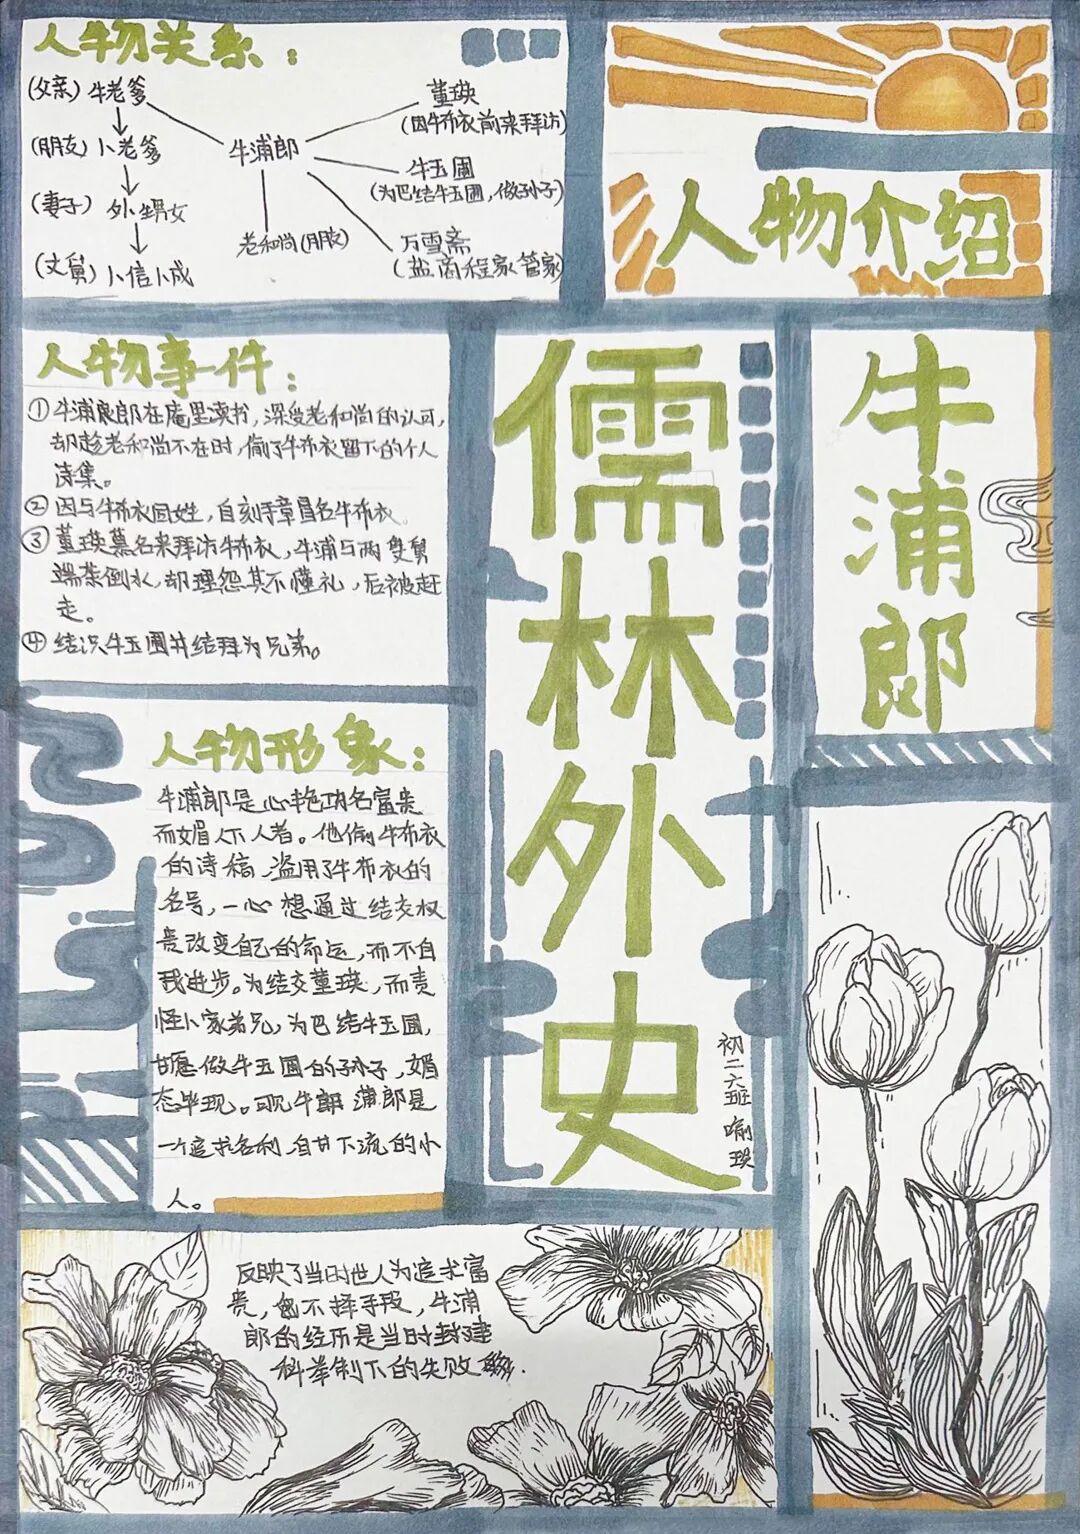 人物关系：
(父亲) 牛老爹
(朋友) 卜老爹
(妻子) 外甥女
(丈舅) 卜信卜成
牛浦郎
老和尚(朋友)
董瑛
(因牛布衣前来拜访)
牛玉圃
(为巴结牛玉圃，做孙子)
万雪斋
(盐商程家管家)
人物介绍
牛浦郎
儒林外史
初二六班 喻
人物事件：
① 牛浦郎在庵里读书，深受老和尚的认可，
却趁老和尚不在时，偷了牛布衣留下的个人
诗集。
② 因与牛布衣同姓，自刻手章冒名牛布衣。
③ 董瑛慕名来拜访牛布衣，牛浦与两
端茶倒水，却埋怨其不懂礼，后被赶
走。
④ 结识牛玉圃并结拜为兄弟。
人物形象：
牛浦郎是心艳功名富贵
而媚人下人者。他偷牛布衣
的诗稿，盗用了牛布衣的
名号，一心想通过结交权
贵改变自己的命运，而不自
我进步。为结交董瑛，而责
怪卜家弟兄，为巴结牛玉圃，
甘愿做牛玉圃的孙子，媚
态毕现。可见牛浦郎是
一个追求名利，自甘下流的小
人。
反映了当时世人为追求富
贵，不择手段，牛浦
郎的经历是当时封建
科举制下的失败